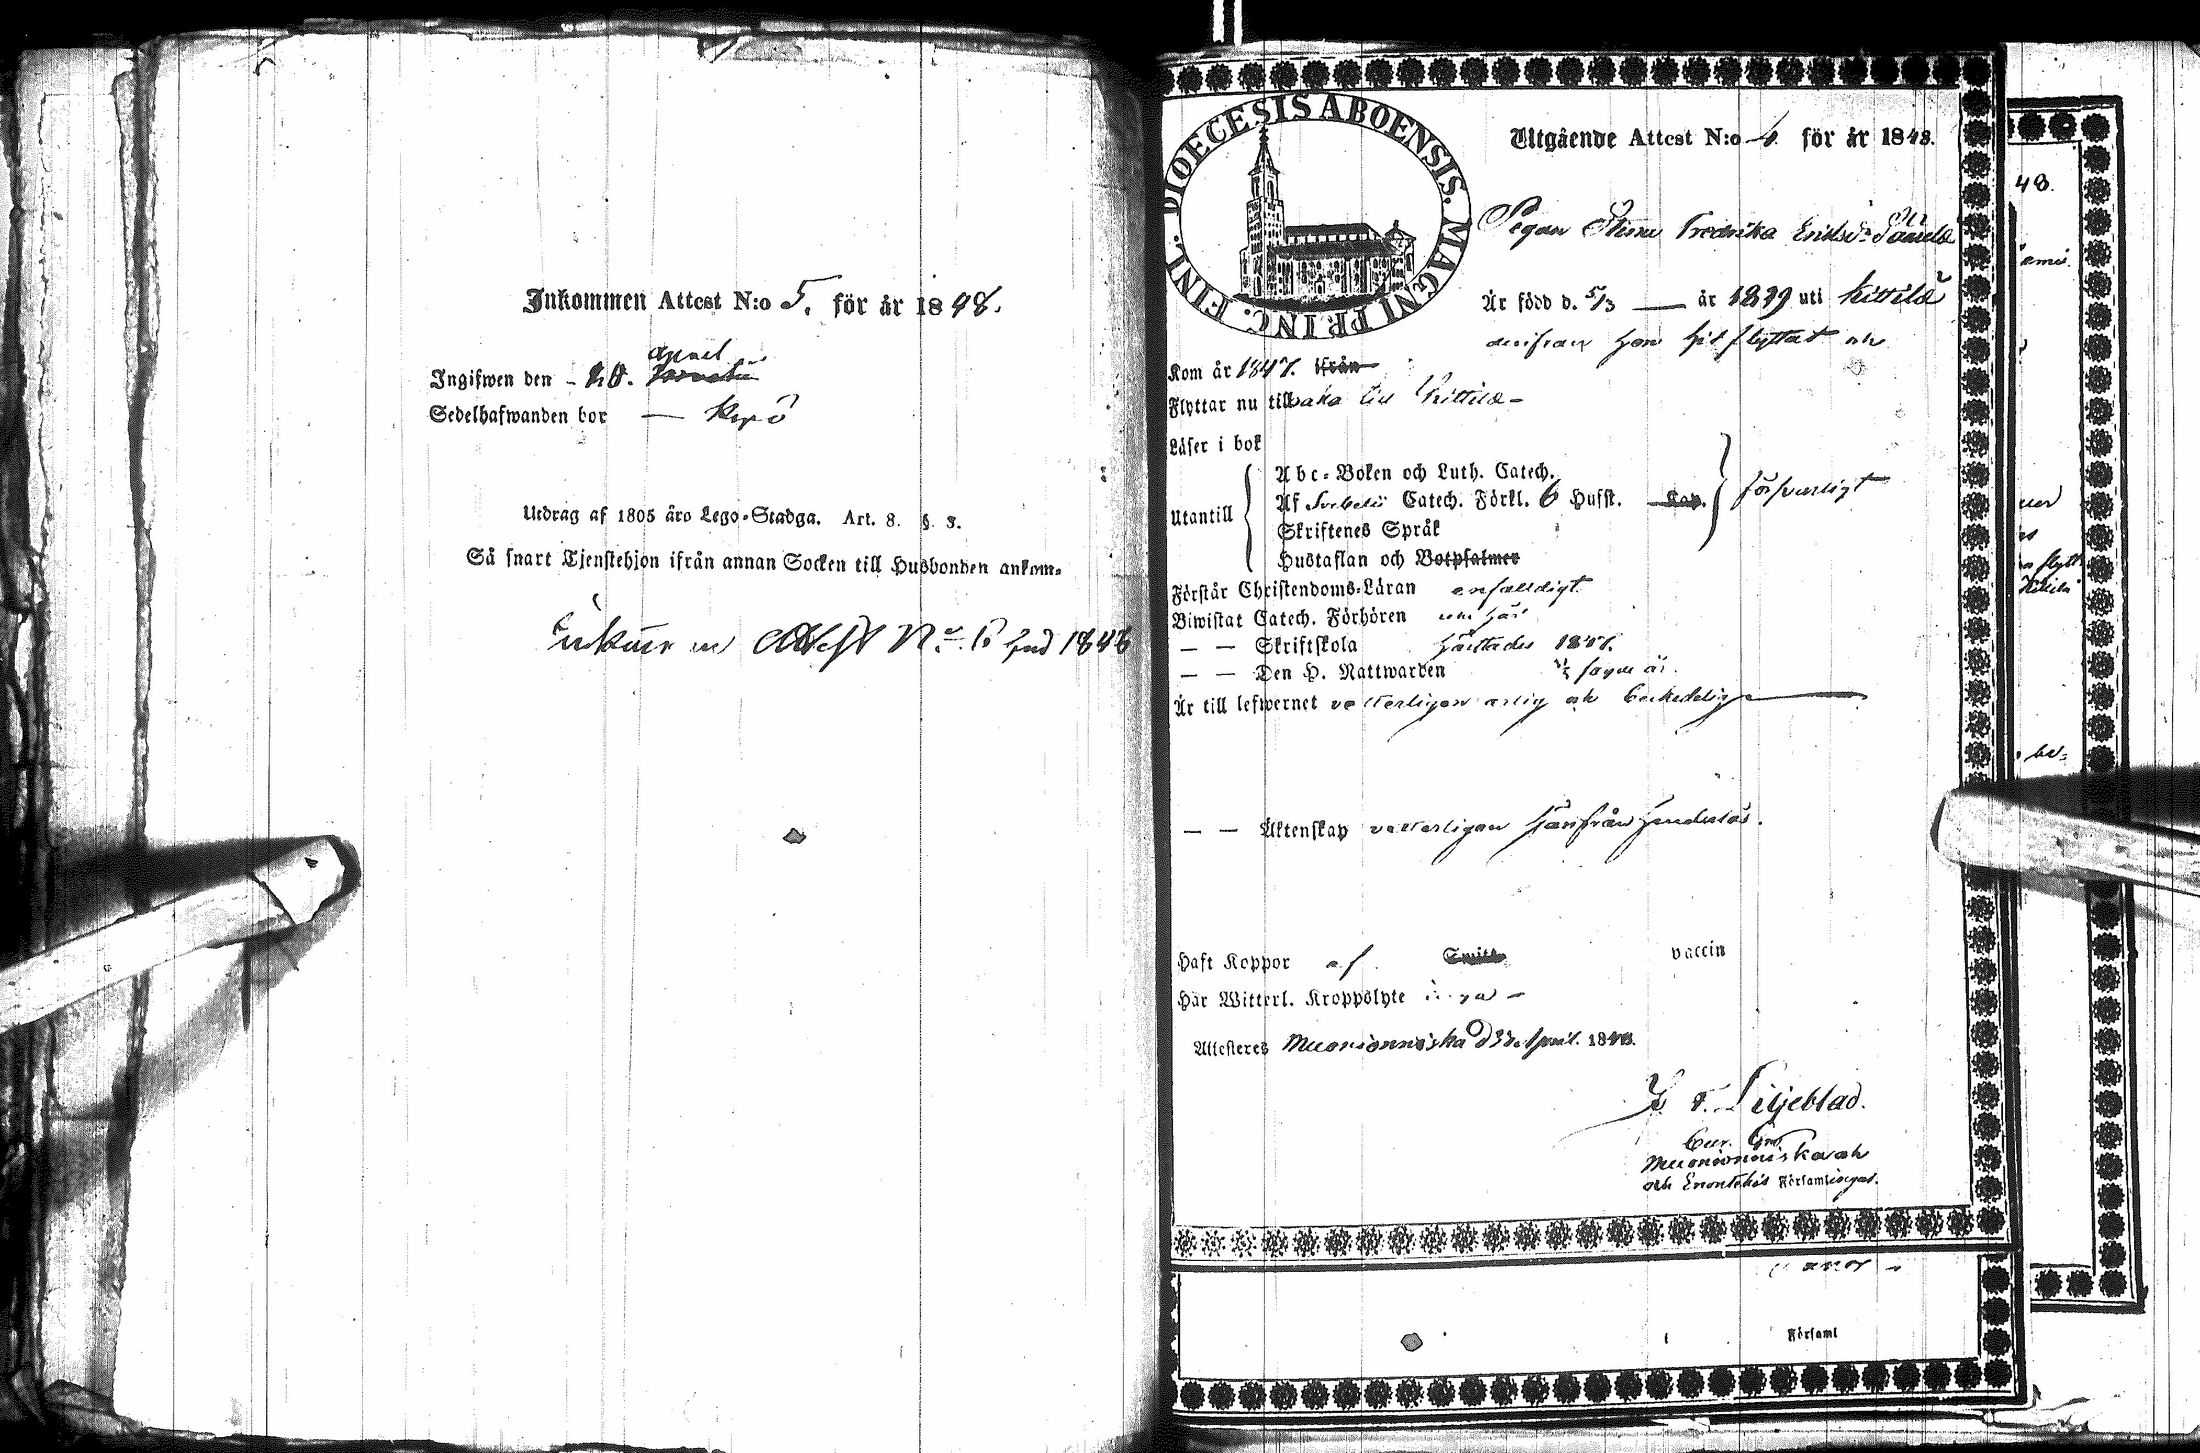 Inkommen Attest N:o 5. för år 1848.
Ingifwen den 20. April
Sedelhafwanden bor —
Utdrag af 1805 års Lego-Stadga. Art. 8. §. 3.
Så snart Tjenstehjon ifrån annan Socken till Husbonden ankom-
Attest N:o 1848
DIOECESIS ABOENSIS. MAGNI PRINC. FINL.
Utgående Attest N:o 4. för år 1848.
Pigan Stina Fredrika Eriksd:r
Är född d. 5/3 — år 1829 uti Kittilä
hvarifran hon hit flyttat och
Kom år 1847. ifrån
Flyttar nu tillbaka till Kittilä -
Läser i bok
Utantill
Abc-Boken och Luth. Catech.
Af Svebelii Catech. Förkl. 6 Hufst. Kap.
försvarligt
Skriftenes Språk
Hustaflan och Botpsalmer
Förstår Christendoms-Läran enfaldigt
Biwistat Catech. Förhören
— — Skriftskola 1847.
— — Den H. Nattwarden
Är till lefwernet vetterligen ärlig och beskedelig
— — Äktenskap vetterligen hinderlös.
Haft Koppor af Smitt vaccin
Här Witterl. Kroppslyte inga -
Attesteres Muonionniska d 3 April 1848.
Liljeblad.
Muonionniska och
och Enontekis Församlingar.
Församl
48.